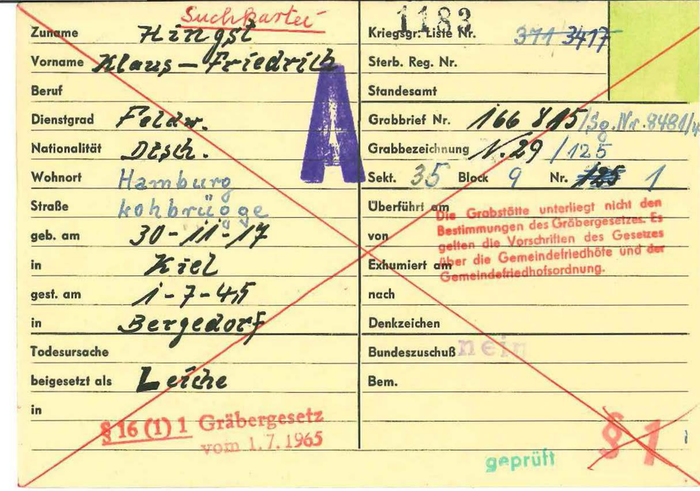 Suchkartei
Zuname Hingst
Vorname Klaus-Friedrich
Beruf
Dienstgrad Feldw.
Nationalität Dtsch.
Wohnort Hamburg
Straße kohbrügge
geb. am 30-11-17
in Kiel
gest. am 1-7-45
in Bergedorf
Todesursache
beigesetzt als Leiche
in
§ 16 (1) 1 Gräbergesetz
vom 1.7.1965
A
1183
Kriegsgr. Liste Nr. 371 3417
Sterb. Reg. Nr.
Standesamt
Grabbrief Nr. 166 815/Sg.Nr. 8481/4
Grabbezeichnung N.29 /125
Sekt. 35 Block 9 Nr. 125 1
Überführt am
von
Exhumiert am
nach
Die Grabstätte unterliegt nicht den
Bestimmungen des Gräbergesetzes. Es
gelten die Vorschriften des Gesetzes
über die Gemeindefriedhöfe und der
Gemeindefriedhofsordnung.
Denkzeichen
Bundeszuschuß nein
Bem.
§ 1
geprüft